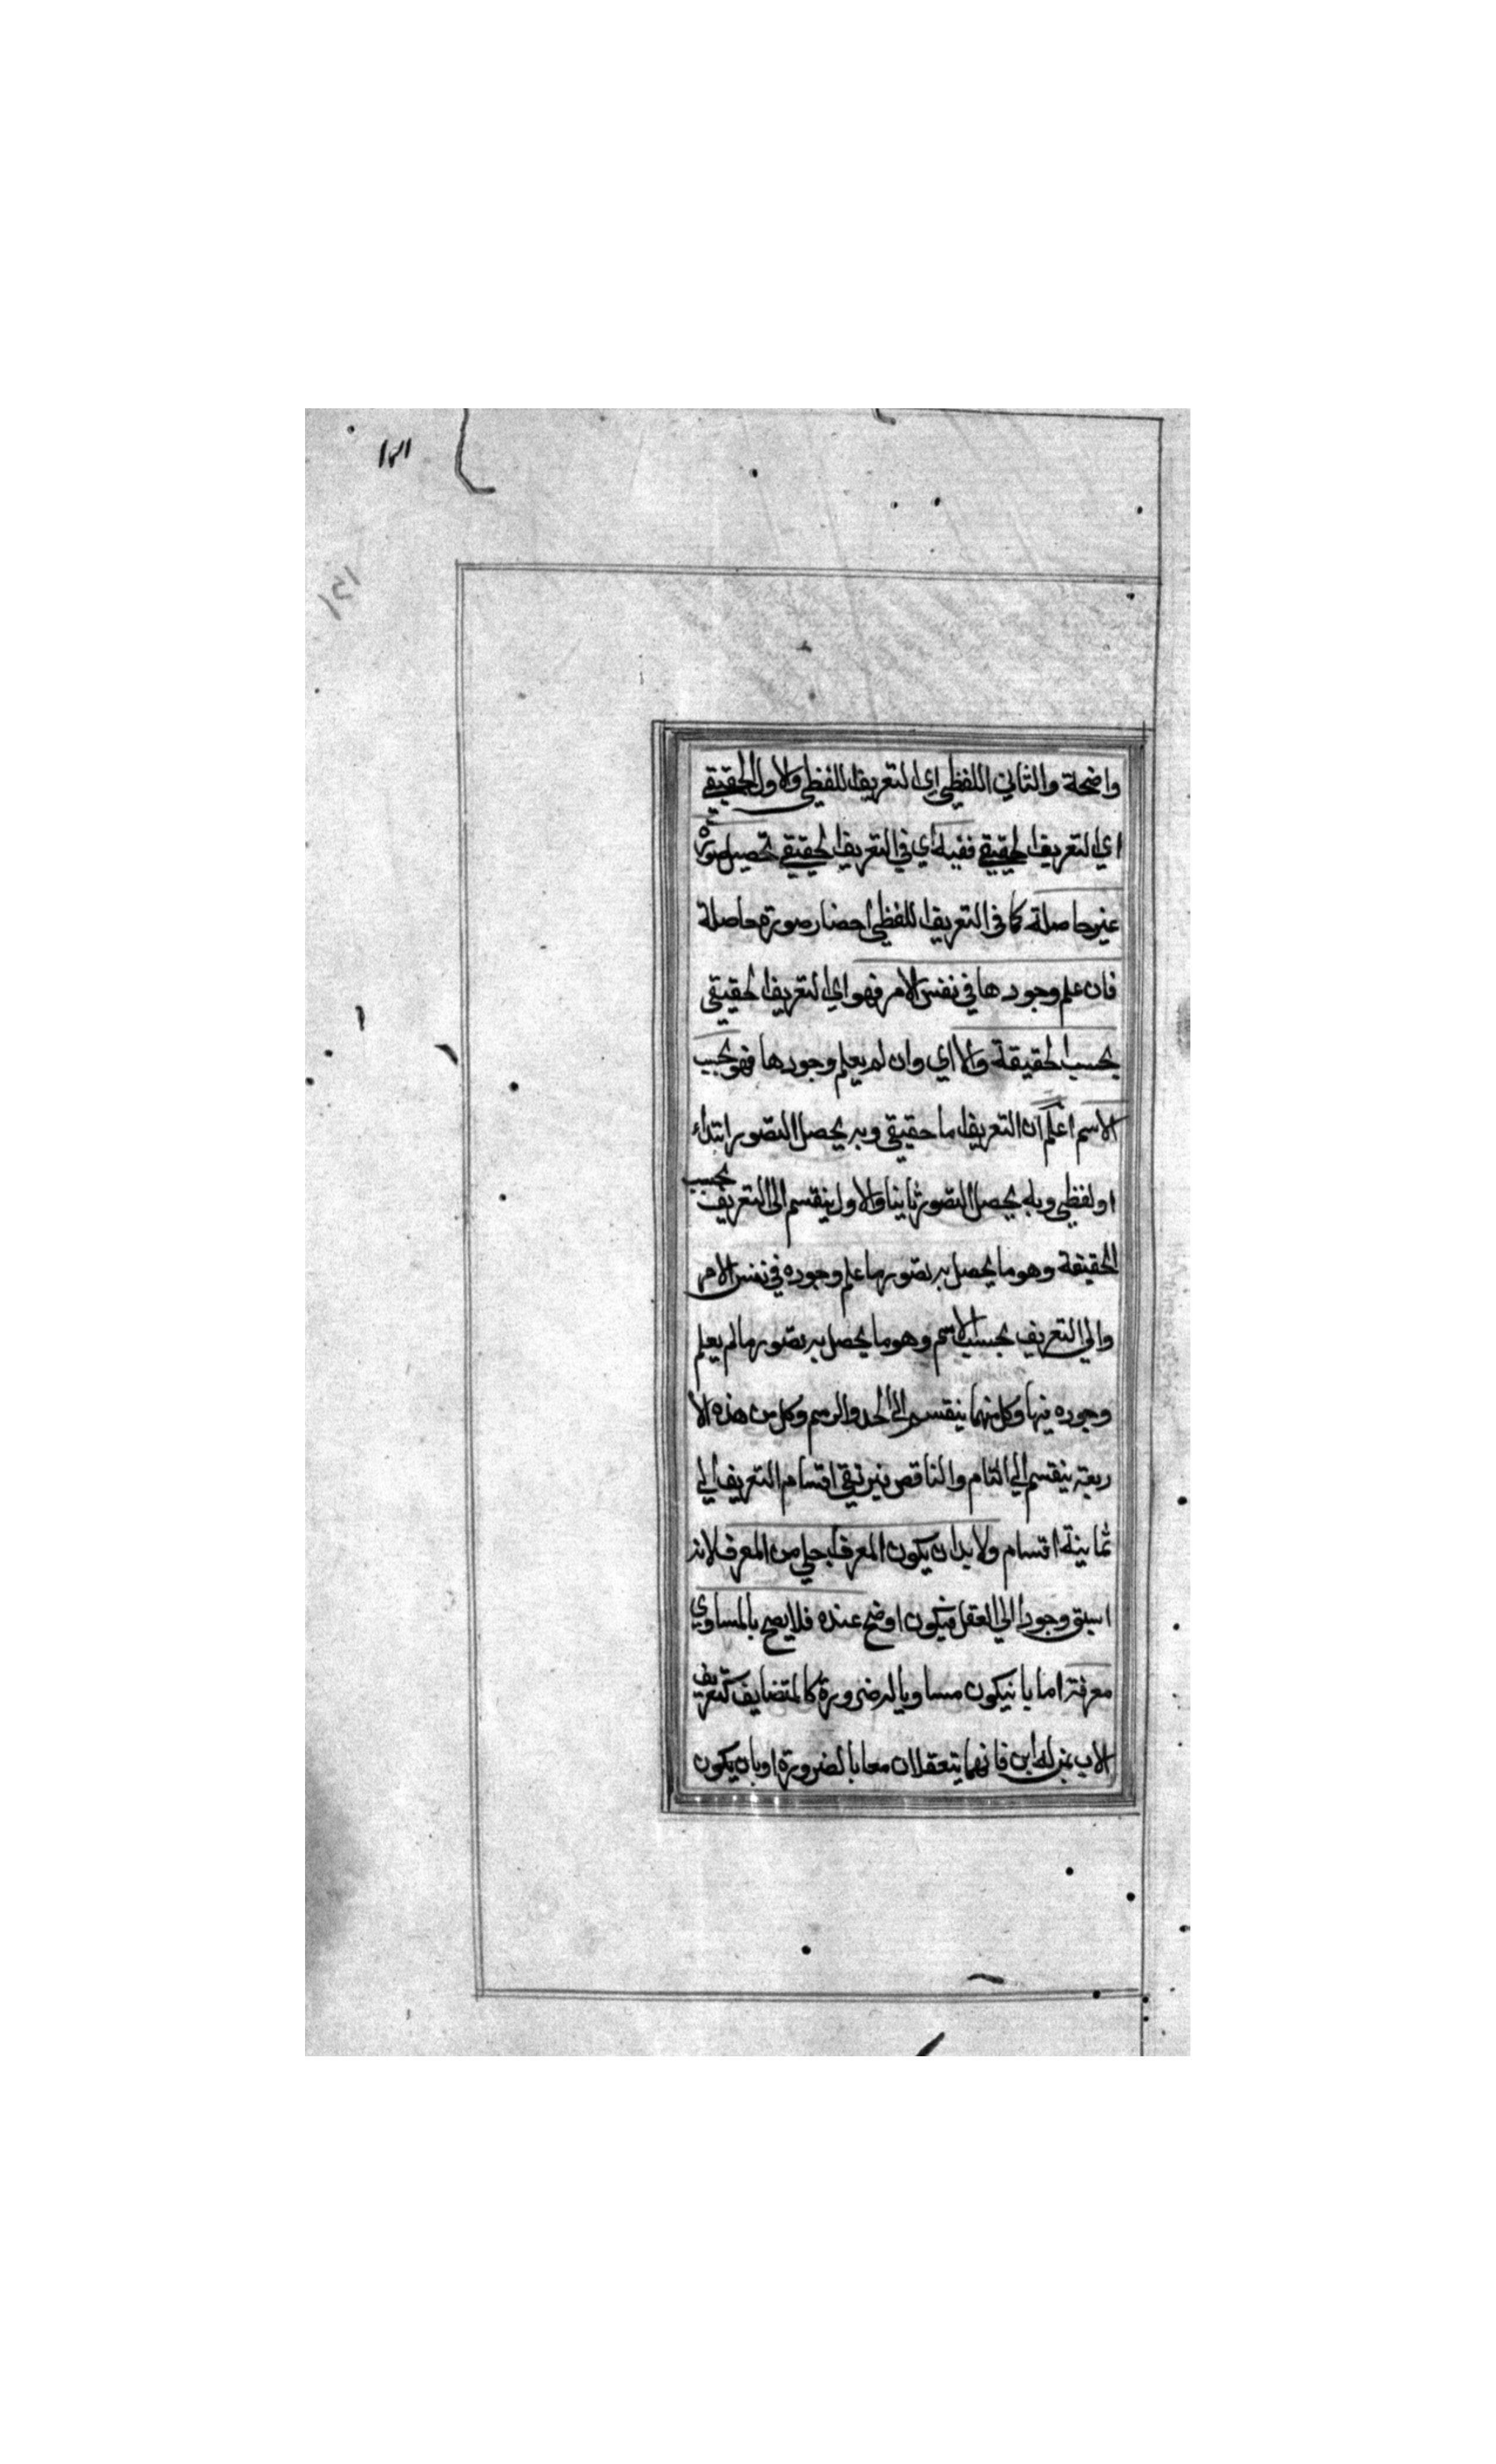 ١٢١
١٢١
واضحلة والثاني اللفظي اي التعريف اللفظي والاول الحقيقي
اي التعريف الحقيقي ففيه اي في التعريف الحقيقي تحصيل صورة
غير حاصلة كما في التعريف اللفظي احضار صورة حاصلة
فان علم وجودها في نفس الامر فهو اي التعريف الحقيقي
بحسب الحقيقة والا اي وان لم يعلم وجودها فهو بحسب
الاسم اعلم ان التعريف اما حقيقي وبه يحصل التصور ابتداء
او لفظي وبه يحصل التصور ثانيا والاول ينقسم الى التعريف بحسب
الحقيقة وهو ما يحصل به تصور ما علم وجوده في نفس الامر
والي التعريف بحسب الاسم وهو ما يحصل به تصور ما لم يعلم
وجوده فيها وكل منهما ينقسم الى الحد والرسم وكل من هذه الا
ربعة ينقسم الي التام والناقص فيرتقي اقسام التعريف الي
ثمانية اقسام ولا بد ان يكون المعرف اجلي من المعرف لانه
اسبق وجودا الي العقل فيكون اوضح عنده فلا يصح بالمساوي
معرفة اما بان يكون مساويا له ضرورة كالمتضايف كتعريف
الاب بمن له ابن فانهما يتعقلان معا بالضرورة او بان يكون